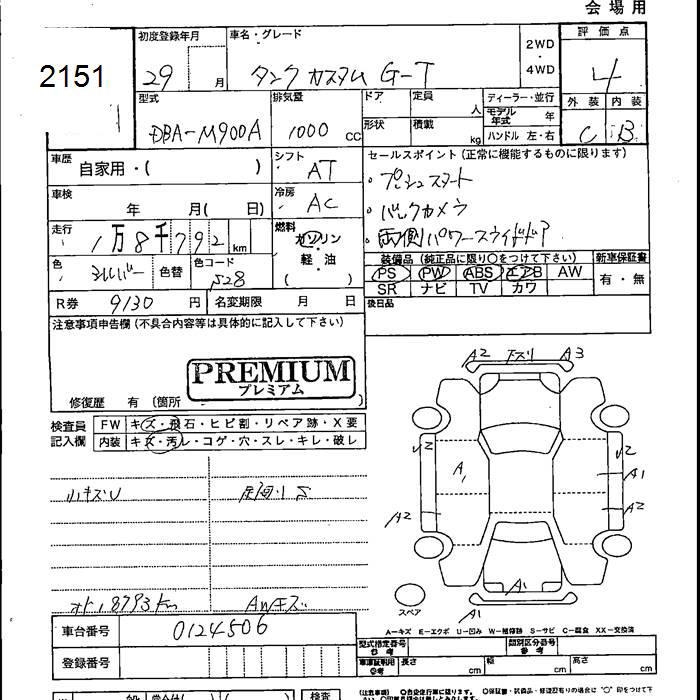 会場用
2151
初度登録年月 車名・グレード 2WD・4WD 評価点
29 月 タンク カスタム G-T 4
型式 排気量 ドア 定員 人 ディーラー・並行 外装 内装
DBA-M900A 1000 cc 形状 積載 kg モデル年式 年 C B
ハンドル 左・右
車歴 自家用・( ) シフト AT セールスポイント(正常に機能するものに限ります)
車検 年 月( 日) 冷房 AC ・プッシュスタート
・バックカメラ
走行 1万8千792km 燃料 ガソリン ・両側パワースライドドア
軽・油
( )
色 シルバー 色替 色コード S28 装備品(純正品に限り○をつけて下さい) 新車保証書
PS PW ABS エアB AW 有・無
SR ナビ TV カワ
R券 9130 円 名変期限 月 日 後日品
注意事項申告欄(不具合内容等は具体的に記入して下さい)
PREMIUM
プレミアム
修復歴 有 (箇所 )
検査員記入欄 FW キズ・飛石・ヒビ割・リペア跡・X要
内装 キズ・汚レ・コゲ・穴・スレ・キレ・破レ
A2 下スリ A3
小キズU 足回りS
A
U2
U2
A1
A2
A2
オド18793km AWキズ
A1
スペア A1
A-キズ E-エクボ U-凹み W-補修跡 S-サビ C-腐食 XX-交換済
車台番号 0124506
型式指定番号 参考 類別区分番号 参考
登録番号 車庫証明用 ○参考 長さ cm 幅 cm 高さ cm
検査